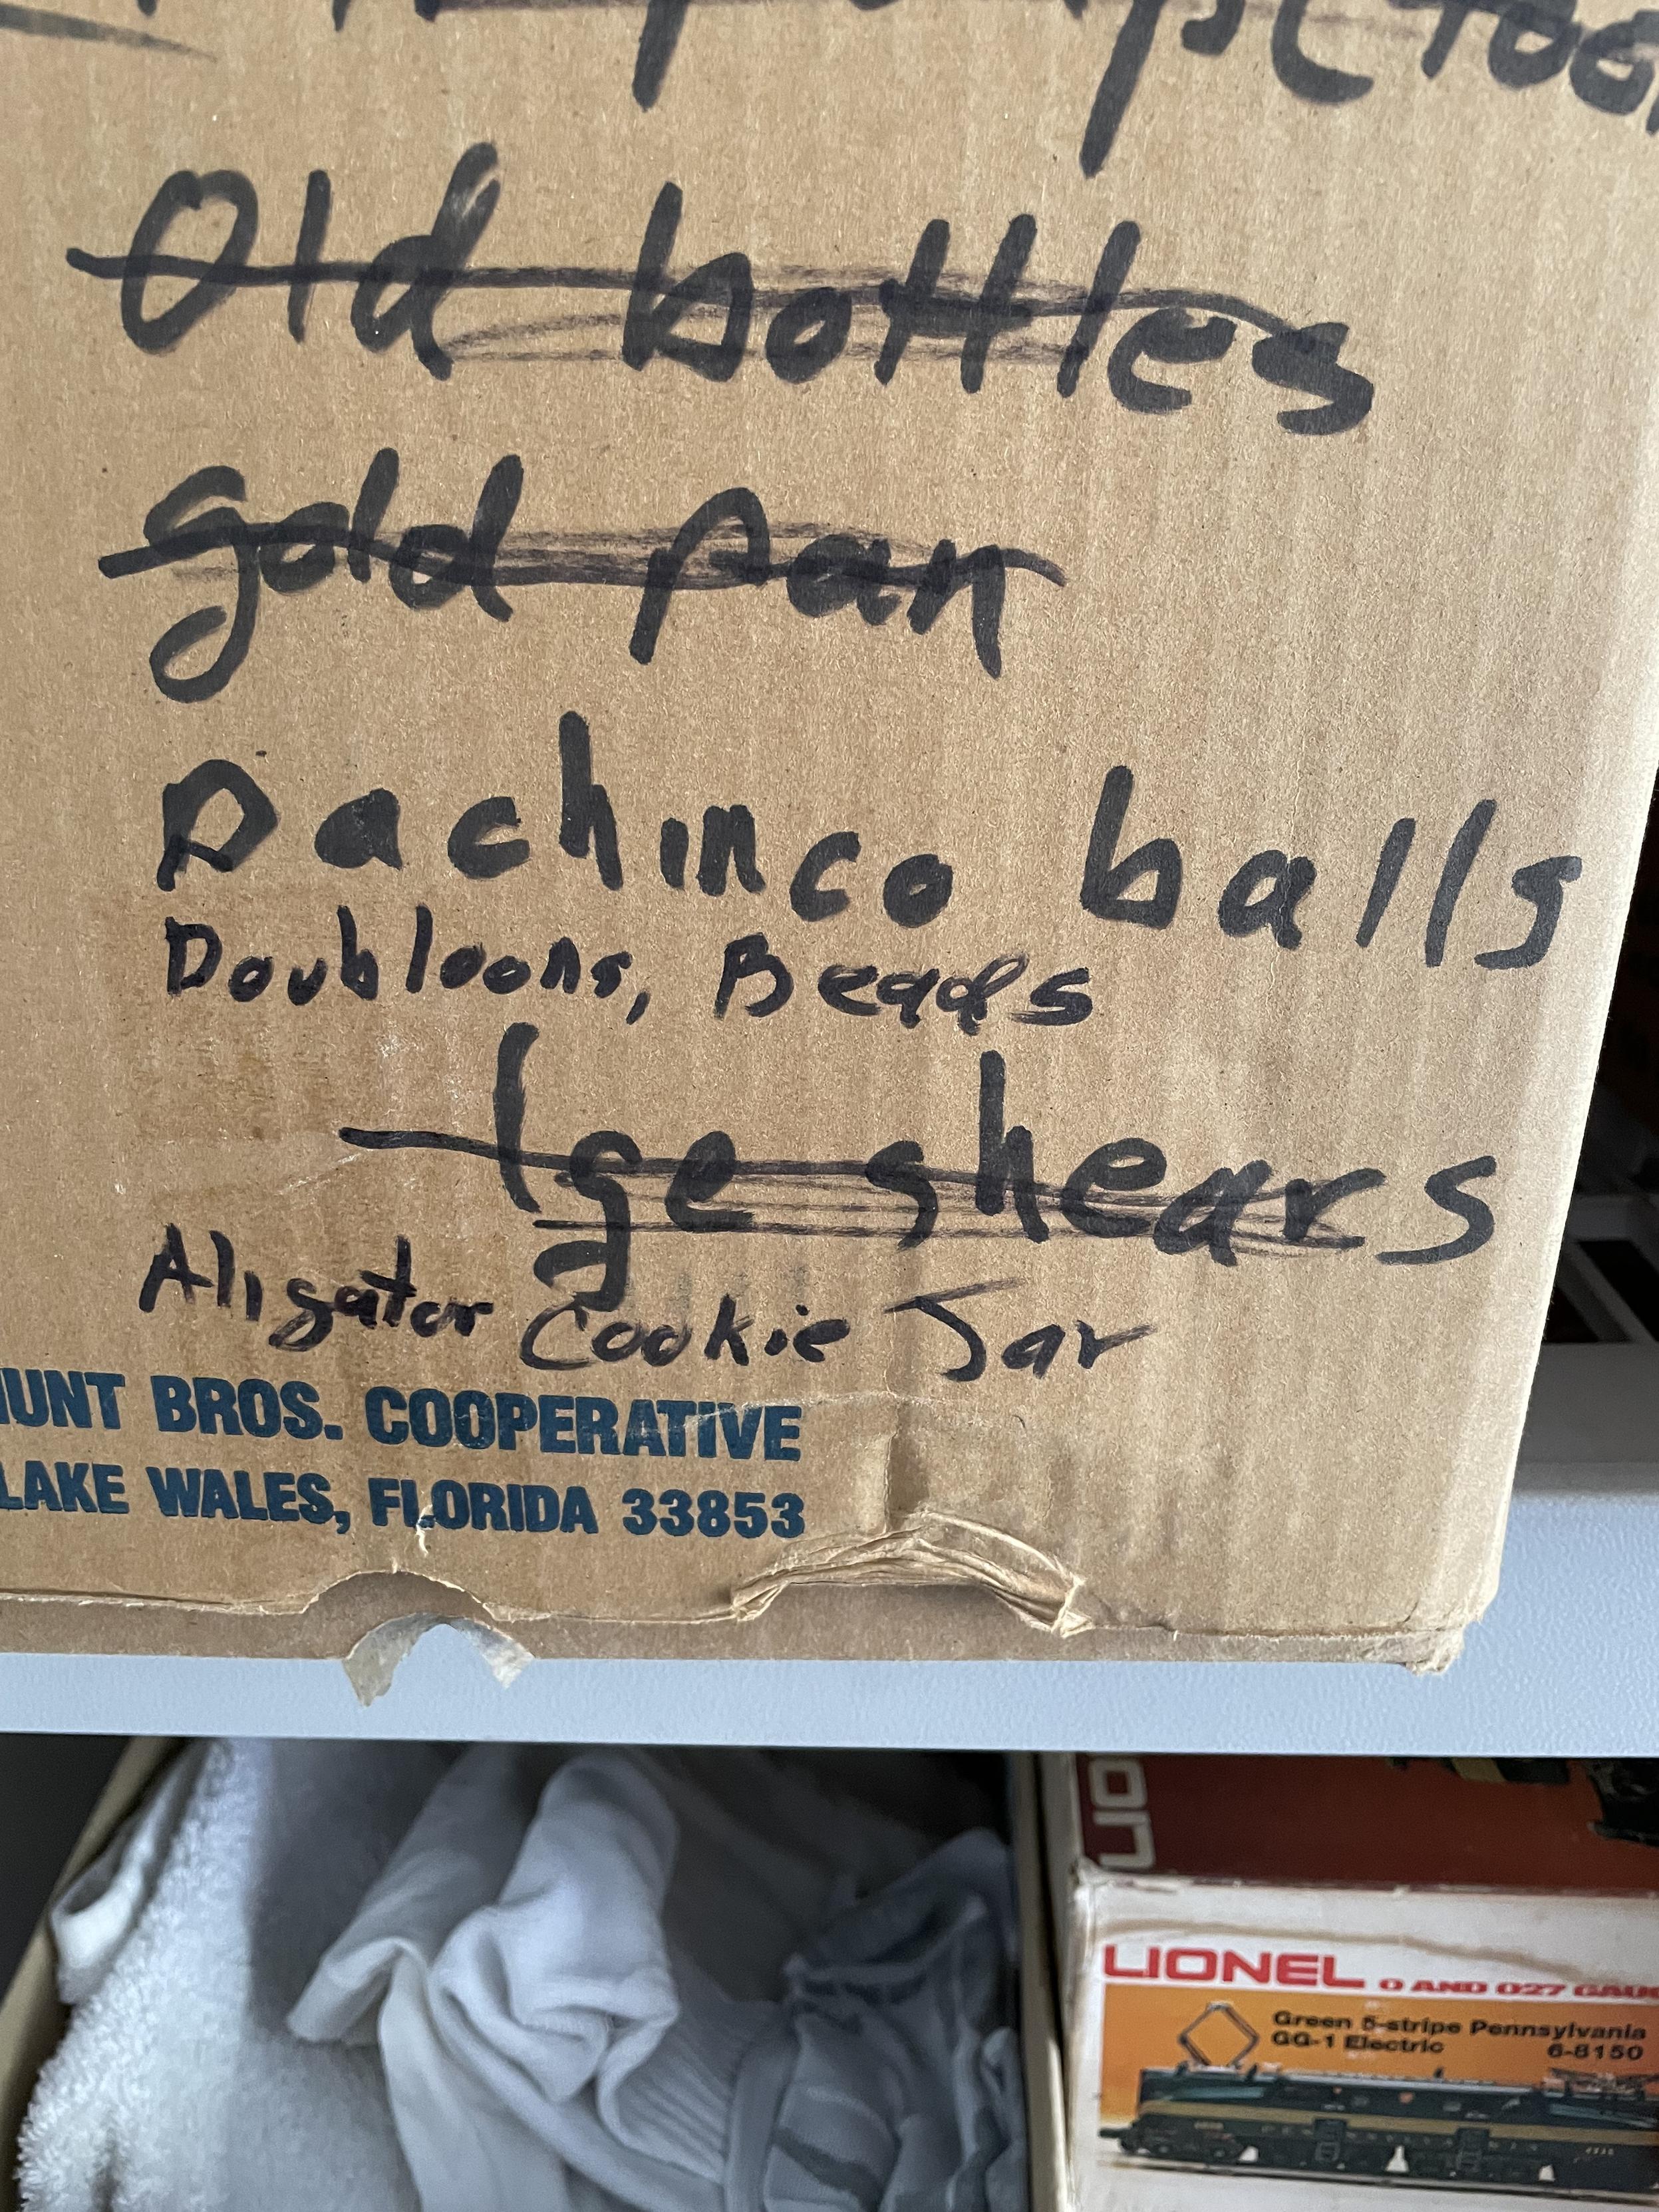 Old bottles
gold pan
Pachinco balls
Doubloons, Beads
lge shears
Aligator Cookie Jar
HUNT BROS. COOPERATIVE
LAKE WALES, FLORIDA 33853
LIONEL O AND 027 GAUG
Green 5-stripe Pennsylvania
GG-1 Electric 6-8150